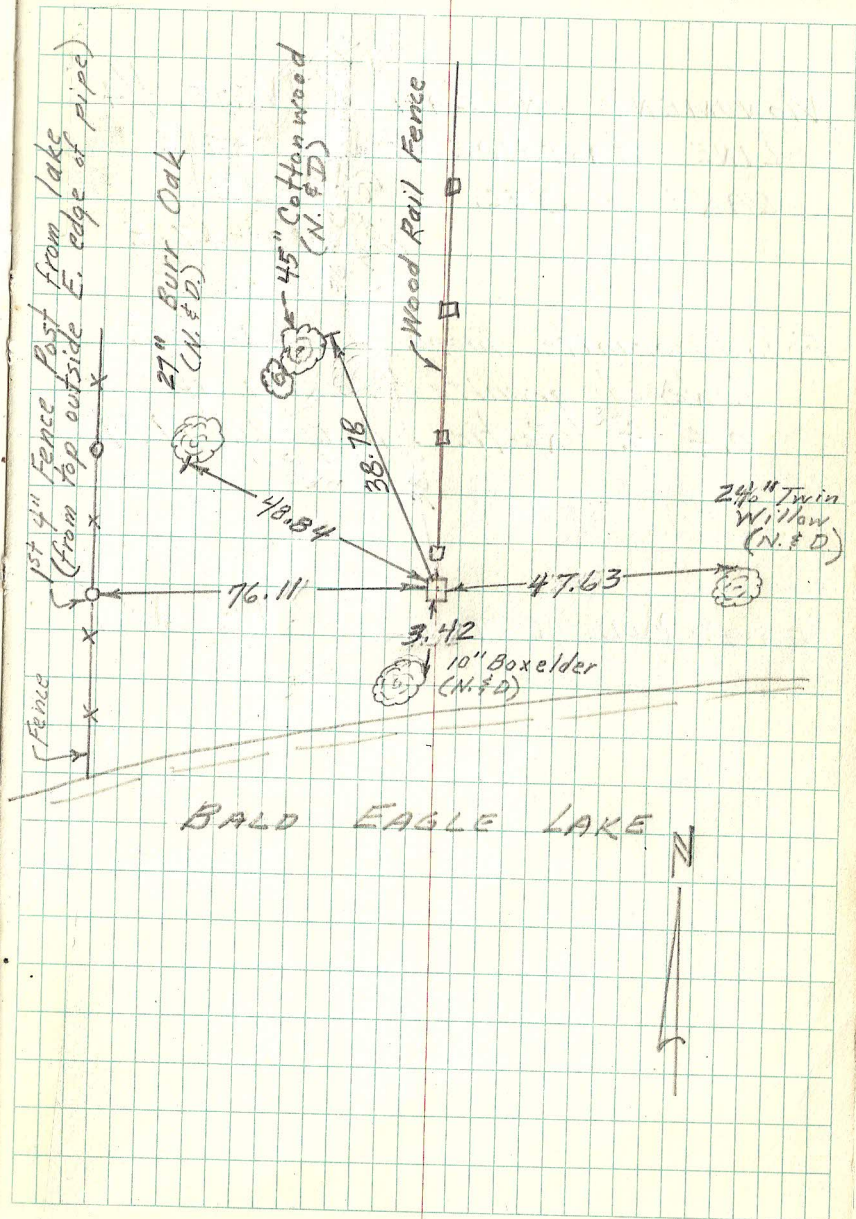 Fence
1st 4" Fence Post from lake
(from top outside E. edge of pipe)
27" Burr Oak
(N. & D.)
45" Cottonwood
(N. & D)
Wood Rail Fence
48.84
38.78
76.11
47.63
3.42
24" Twin
Willow
(N. & D.)
10" Boxelder
(N. & D)
BALD EAGLE LAKE
N